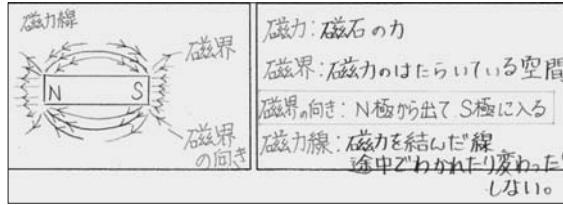 磁力線
磁界
N S
磁界
の向き
磁力:磁石の力
磁界:磁力のはたらいている空間
磁界の向き:N極から出てS極に入る
磁力線:磁力を結んだ線
途中でわかれたり変わった
しない。